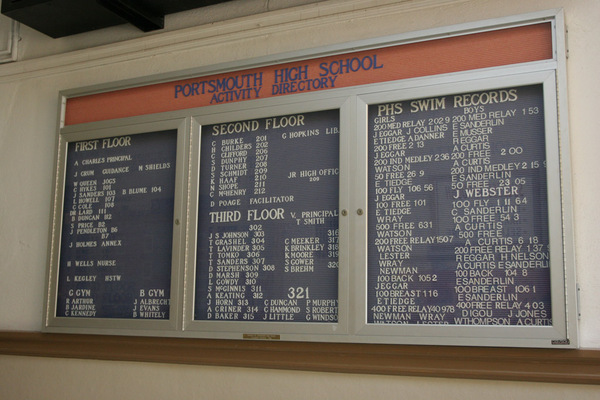 PORTSMOUTH HIGH SCHOOL
ACTIVITY DIRECTORY
FIRST FLOOR
A CHARLES PRINCIPAL
J GRUM GUIDANCE N SHIELDS
W QUEEN 100S
C SYKES 101
J SANDERS 103 B BLUME 104
L HOWELL 107
C COLE 108
DR LARD 111
B DUNCAN
S PRICE B2
J PENDLETON B6
B7
J HOLMES ANNEX
H WELLS NURSE
L KEGLEY
G GYM B GYM
R ARTHUR J ALBRECH
B JARDINE J EVANS
C KENNEDY B WHITELY
SECOND FLOOR
C BURKE 201 G HOPKINS LIB
H CHILDERS 202
C CLIFFORD 206
S DUNPHY 207
D TURNER 208
S SCHMIDT 209 JR HIGH OFFIC
K HAAF 210 209
N SHOPE 211
C MCHENRY 212
D POAGE FACILITATOR
THIRD FLOOR V. PRINCIPAL
302 T SMITH
J S JOHNSON 303 316
T GRASHEL 304 C MEEKER 317
T LAVINDER 305 K BRINKLEY 318
T TONKO 306 K MOORE 319
T SANDERS 307 S GOWER 320
D STEPHENSON 308 S BREHM
D MARSH 309
L GOWDY 310
S MCGINNIS 311
A KEATING 312 321
J HORN 313 C DUNCAN P MURPHY
A CRINER 314 C HAMMOND S ROBERT
D BAKER 315 J LITTLE G WINDSO
PHS SWIM RECORDS
GIRLS BOYS
200 MED RELAY 202 9 200 MED RELAY 1 53
J EGGAR J COLLINS E SANDERLIN
E TIEDGE A DANNER E MUSSER
200 FREE 2 13 R EGGAR
J EGGAR A CURTIS
200 IND MEDLEY 2 36 200 FREE 2 00
WATSON A CURTIS
50 FREE 26 9 200 IND MEDLEY 2 15
E TIEDGE E SANDERLIN
100 FLY 106 56 50 FREE 23 05
J EGGAR J WEBSTER
100 FREE 101 100 FLY 1 11 64
E TIEDGE C SANDERLIN
WRAY 100 FREE 54 3
500 FREE 631 A CURTIS
WATSON 500 FREE
200 FREE RELAY 1507 A CURTIS 6 18
LESTER 200 FREE RELAY 1 37
WRAY R EGGAR H NELSON
NEWMAN A CURTIS E SANDERL
100 BACK 1052 100 BACK 104 8
J EGGAR E SANDERLIN
100 BREAST 1 16 100 BREAST 106 1
E TIEDGE E SANDERLIN
400 FREE RELAY 40 978 400 FREE RELAY 4 03
NEWMAN WRAY DIGOU J JONES
WATSON LESTER W THOMPSON A CURTIS